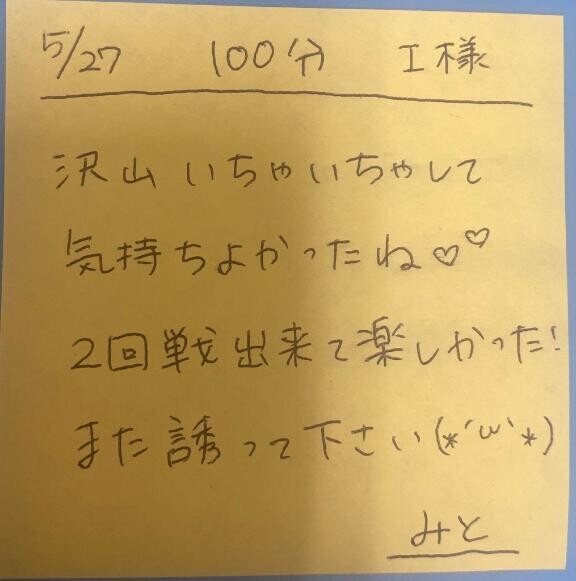 5/27 100分 I様
沢山いちゃいちゃして
気持ちよかったね♡♡
2回戦出来て楽しかった!
また誘って下さい(*´ω`*)
みと